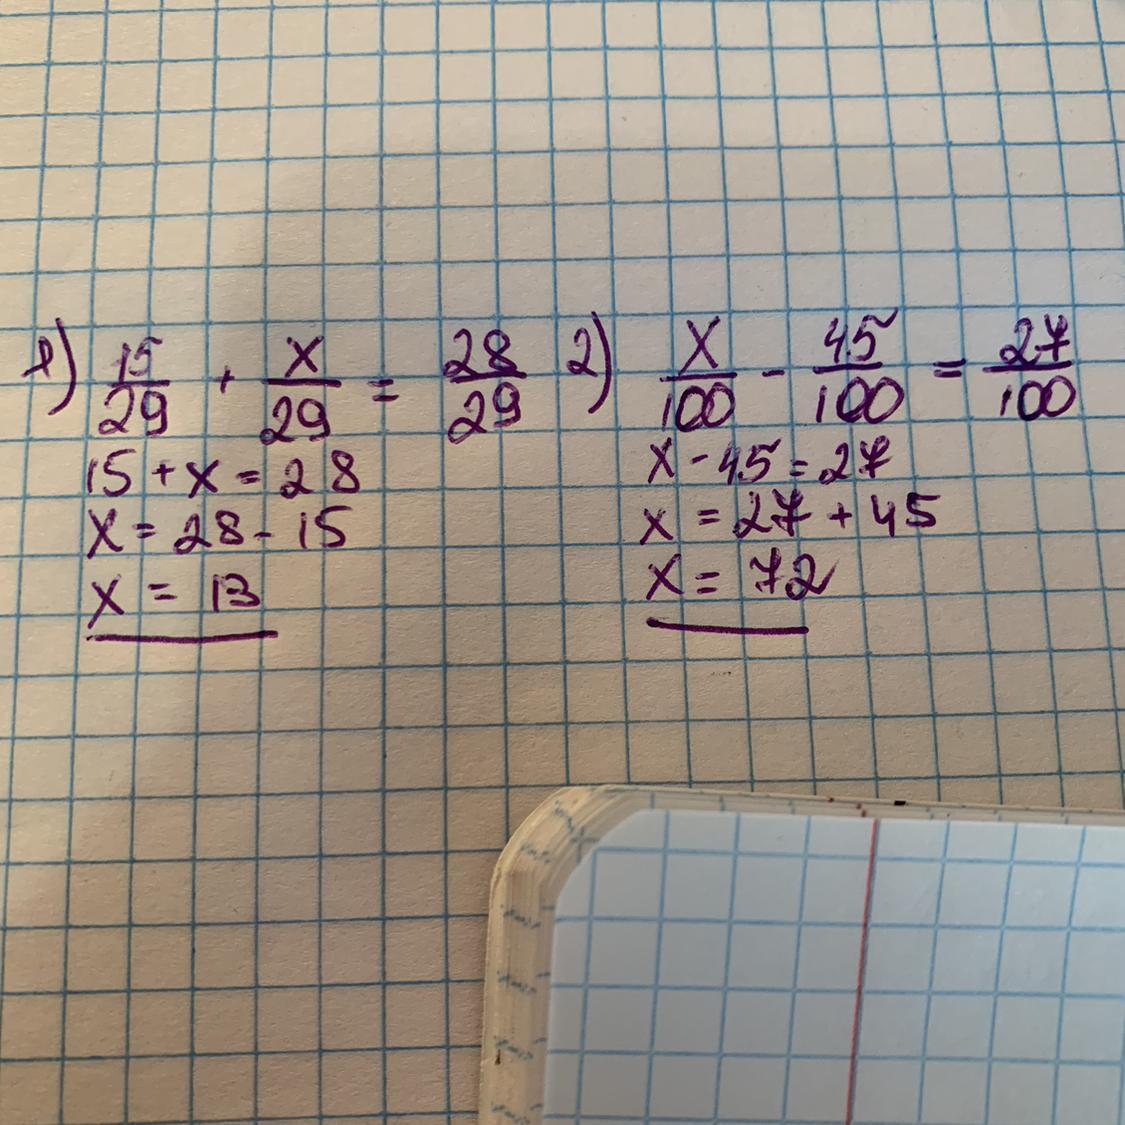 1) 15/29 + x/29 = 28/29
15 + x = 28
x = 28 - 15
x = 13
2) x/100 - 45/100 = 27/100
x - 45 = 27
x = 27 + 45
x = 72